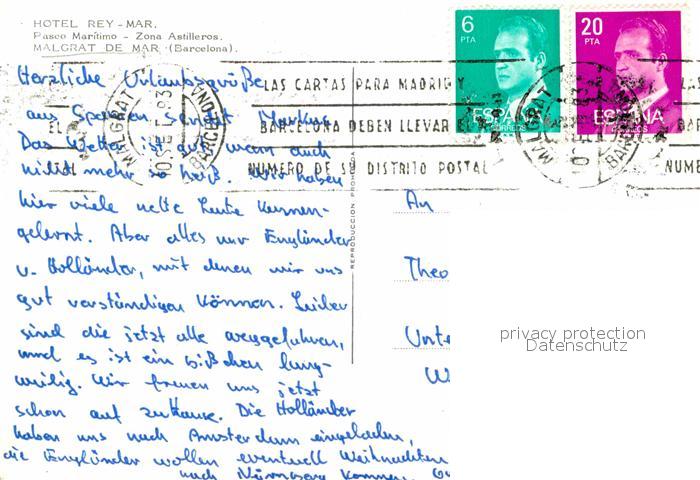 HOTEL REY-MAR.
Paseo Marítimo - Zona Astilleros.
MALGRAT DE MAR (Barcelona).
6
PTA
ESPAÑA
CORREOS
20
PTA
ESPAÑA
CORREOS
LAS CARTAS PARA MADRID Y
BARCELONA DEBEN LLEVAR EL
NUMERO DE SU DISTRITO POSTAL
MALGRAT
BARCELONA
MALGRAT
LAS
NUME
Herzliche Urlaubsgrüße
aus Spanien sendet Markus
Das Wetter ist gut, wenn auch
nicht mehr so heiß. Wir haben
hier viele nette Leute kennen-
gelernt. Aber alles nur Engländer
u. Holländer, mit denen wir uns
gut verständigen können. Leider
sind die jetzt alle weggefahren,
und es ist ein bißchen lang-
weilig. Wir freuen uns jetzt
schon auf zuhause. Die Holländer
haben uns nach Amsterdam eingeladen,
die Engländer wollen eventuell Weihnachten
nach Nürnberg kommen.
REPRODUCCION PROHIBIDA
An
Theo
Unte
W
privacy protection
Datenschutz